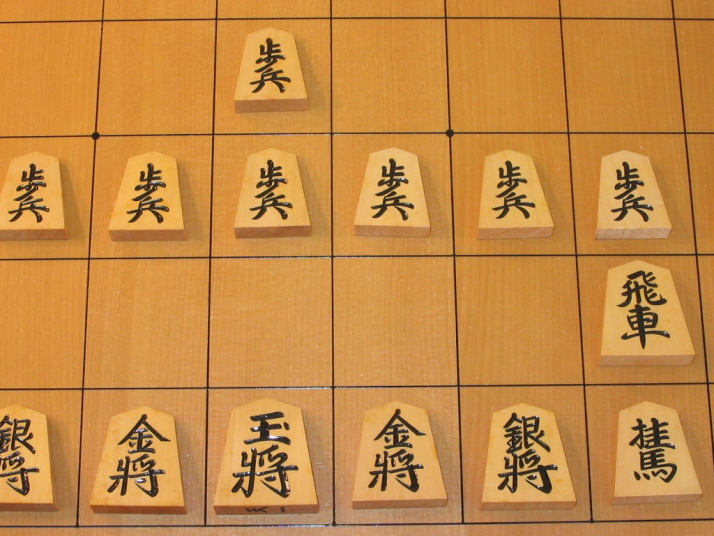 歩兵
歩兵
歩兵
歩兵
歩兵
歩兵
歩兵
飛車
銀將
金將
玉將
金將
銀將
桂馬